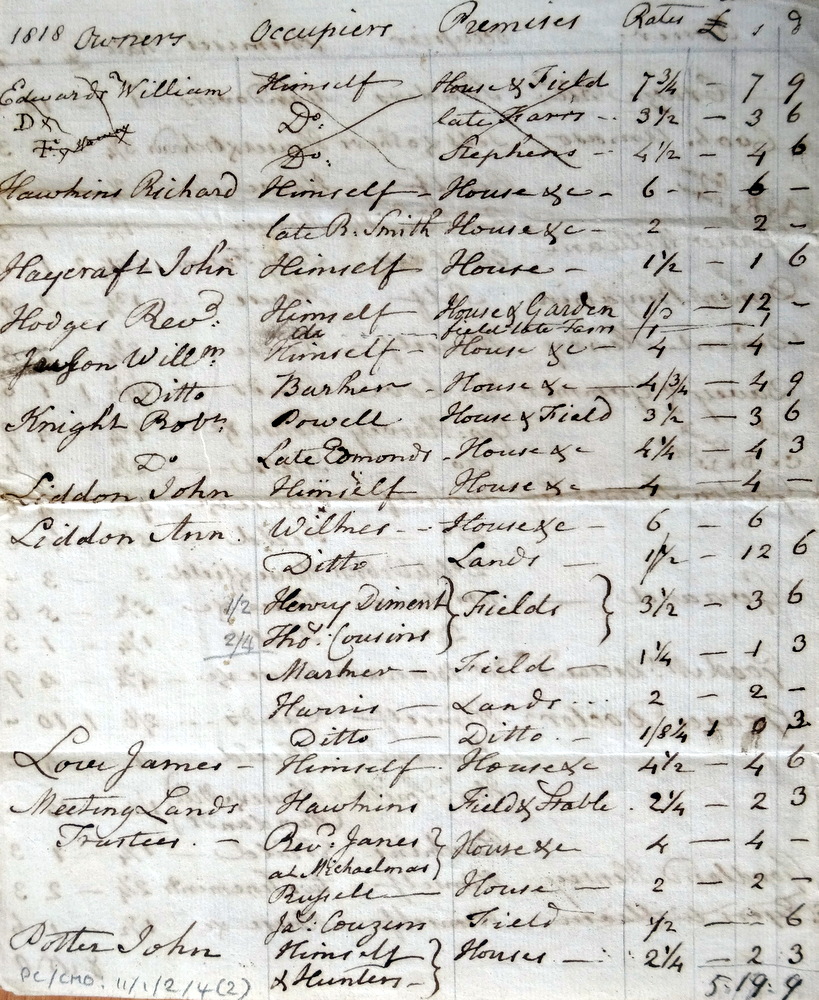 1818 Owners Occupiers Premises Rates £ s d
Edwards William Himself House & Field 7 3/4 - 7 9
Do Do: late Farrs - 3 1/2 - 3 6
Do: Stephens - 4 1/2 - 4 6
Hawkins Richard Himself - House &c - 6 - - 6 -
late R. Smith House &c - 2 - 2 -
Haycraft John Himself House - 1 1/2 - 1 6
Hodges Revd. Himself House & Garden 1/3 - 12 -
do field late Farm
Willm Himself - House &c - 4 - 4 -
Ditto Barker - House &c - 4 3/4 - 4 9
Knight Robt Powell House & Field 3 1/2 - 3 6
Do Late Edmonds - House &c 4 1/4 - 4 3
Liddon John Himself House &c - 4 - 4 -
Liddon Ann. - House &c - 6 - 6
Ditto - Lands - - 12 6
1/2 Henry Diment } Fields } 3 1/2 - 3 6
2/4 Thos. Cousins
Field - 1 1/4 - 1 3
Harris - Lands ... 2 - 2 -
Ditto - Ditto - 1/8 1/4 1 0 3
Love James - Himself House &c 4 1/2 - 4 6
Meeting Lands Hawkins Field & Stable . 2 1/4 - 2 3
Trustees. - Revd. Janes } House &c 4 - 4 -
at Michaelmas
Russell - House - 2 - 2 -
Jas. Couzens Field - 1/2 - 6
Potter John Himself } Houses - 2 1/4 - 2 3
& Hunters -
PC/CMO: 11/1/2/4(2) 5.19.9